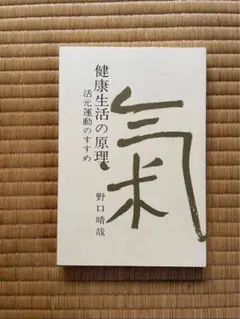 健康生活の原理
活元運動のすすめ
野口晴哉
氣